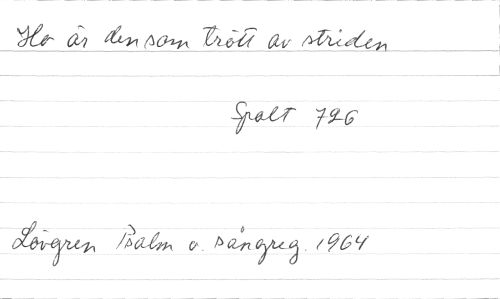 Ho är den som trött av striden
Spalt 726
Lövgren Psalm o. sångreg. 1964